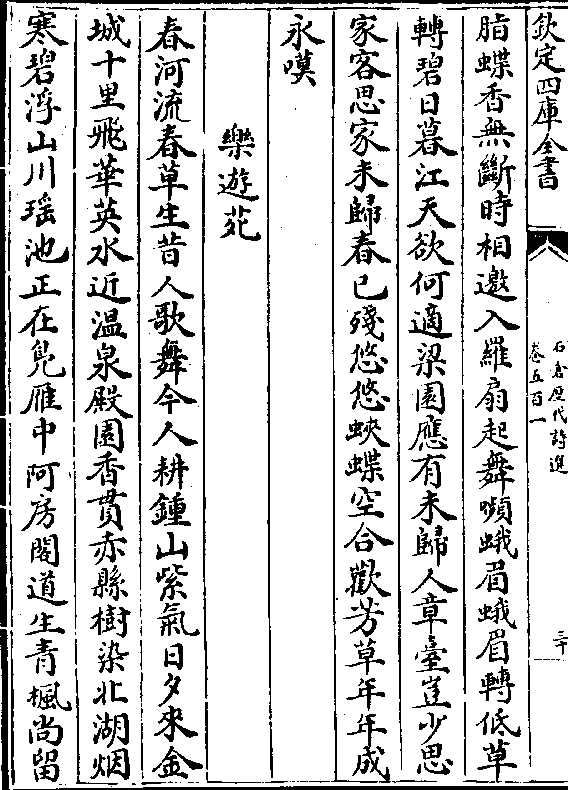 欽定四庫全書
石倉歷代詩選
卷五百一
三十
脂蝶香無斷時相邀入羅扇起舞嚬蛾眉蛾眉轉低草
轉碧日暮江天欲何適梁園應有未歸人章臺豈少思
家客思家未歸春已殘悠悠蛺蝶空合歡芳草年年成
永嘆
樂遊苑
春河流春草生昔人歌舞今人耕鍾山紫氣日夕來金
城十里飛華英水近温泉殿園香貫赤縣樹染北湖烟
寒碧浮山川瑶池正在鳬雁中阿房閣道生青楓尚留